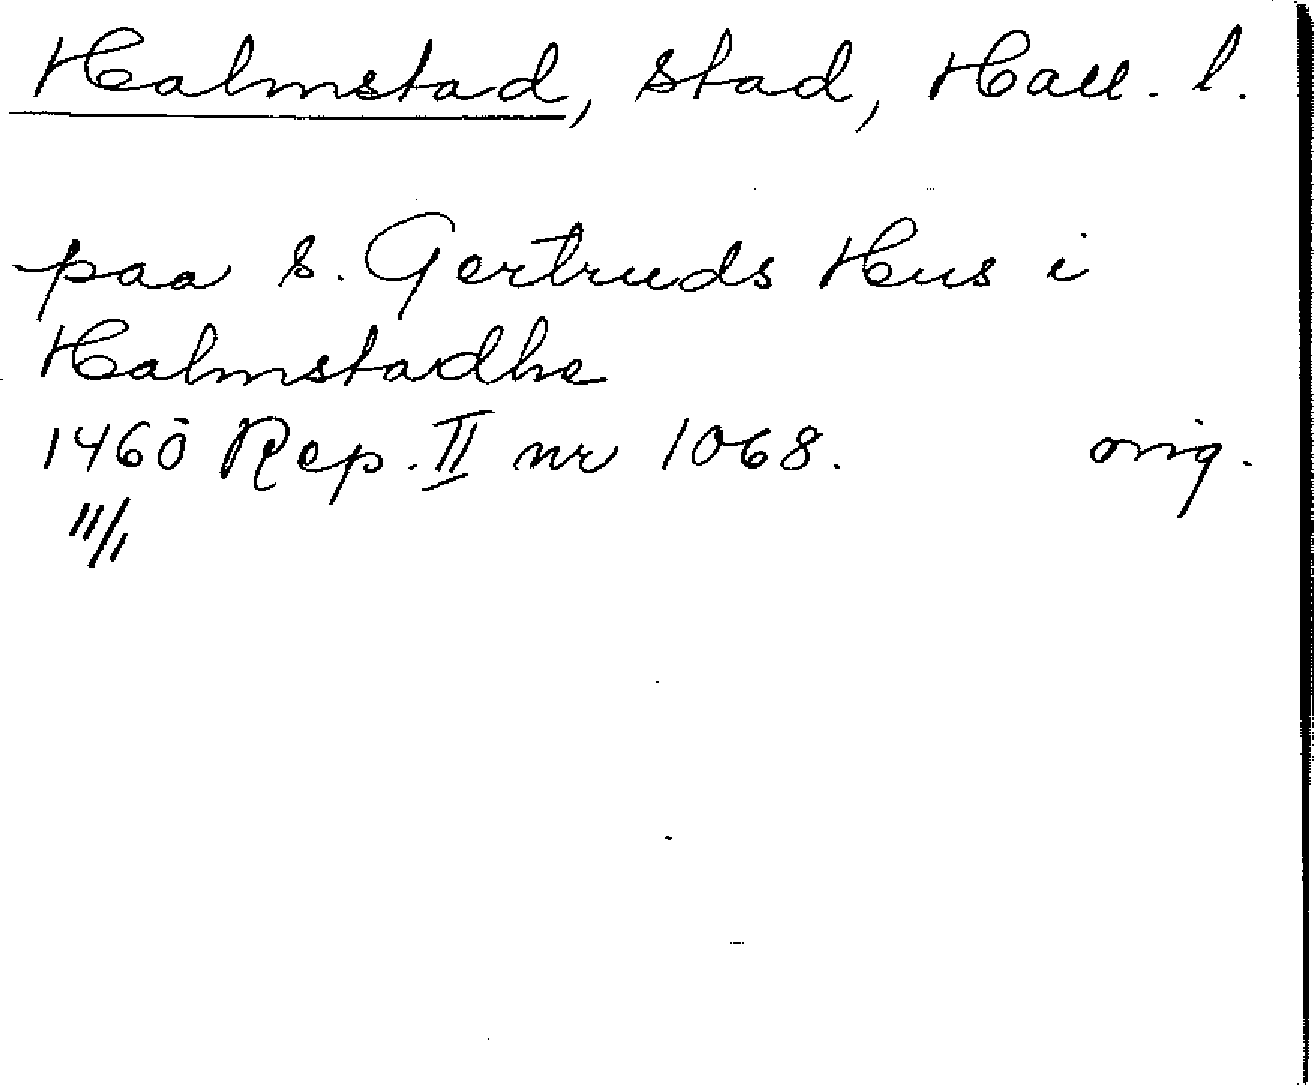 Halmstad, stad, Hall. l.
paa s. Gertruds Hus i
Halmstadhe
1460 Rep. II nr 1068. orig.
11/1